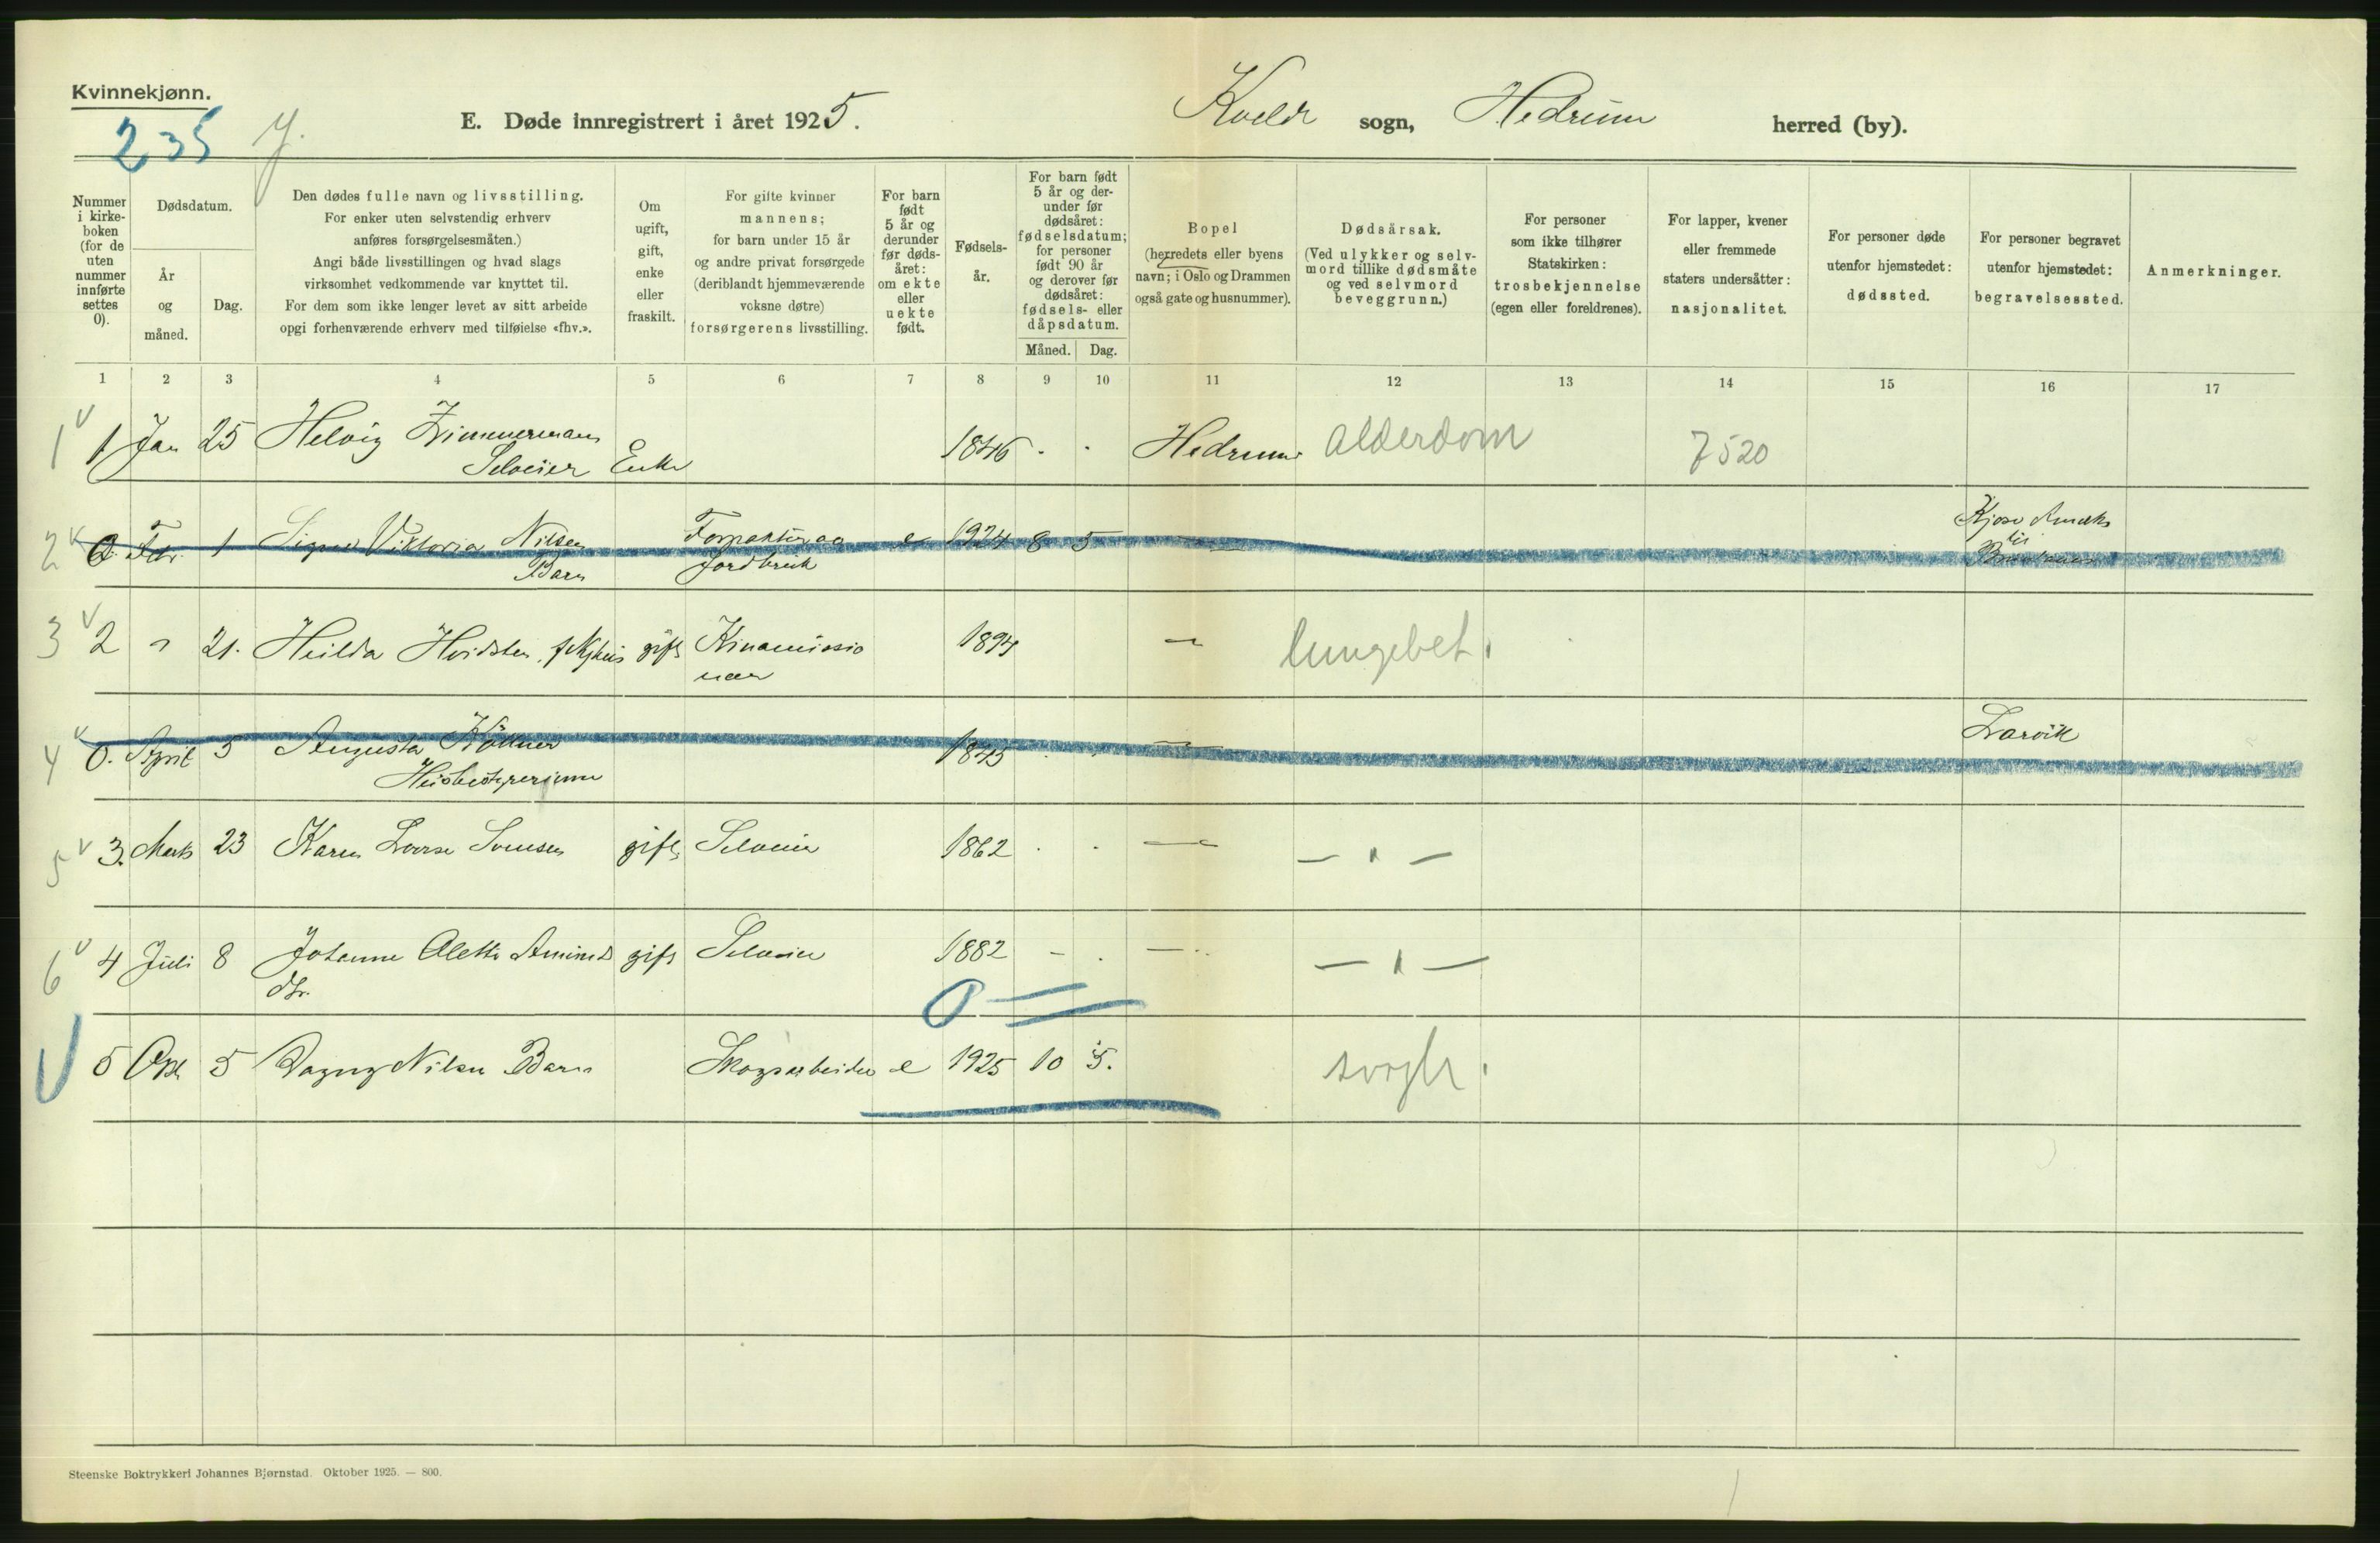 Kvinnekjønn.
235 J.
E. Døde innregistrert i året 1925.
Kvelde sogn, Hedrum herred (by).
Nummer i kirkeboken (for de uten nummer innførte settes 0).
Dødsdatum.
År og måned.
Dag.
Den dødes fulle navn og livsstilling.
For enker uten selvstendig erhverv
anføres forsørgelsesmåten.)
Angi både livsstillingen og hvad slags
virksomhet vedkommende var knyttet til.
For dem som ikke lenger levet av sitt arbeide
opgi forhenværende erhverv med tilføielse «fhv.».
Om
ugift,
gift,
enke
eller
fraskilt.
For gifte kvinner
mannens;
for barn under 15 år
og andre privat forsørgede
(deriblandt hjemmeværende
voksne døtre)
forsørgerens livsstilling.
For barn
født
5 år og
derunder
før døds-
året:
om ekte
eller
uekte
født.
Fødsels-
år.
For barn født
5 år og der-
under før
dødsåret:
fødselsdatum;
for personer
født 90 år
og derover før
dødsåret:
fødsels- eller
dåpsdatum.
Måned. Dag.
Bopel
(herredets eller byens
navn; i Oslo og Drammen
også gate og husnummer).
Dødsårsak.
(Ved ulykker og selv-
mord tillike dødsmåte
og ved selvmord
beveggrunn.)
For personer
som ikke tilhører
Statskirken:
trosbekjennelse
(egen eller foreldrenes).
For lapper, kvener
eller fremmede
staters undersåtter:
nasjonalitet.
For personer døde
utenfor hjemstedet:
dødssted.
For personer begravet
utenfor hjemstedet:
begravelsessted.
Anmerkninger.
1 2 3 4 5 6 7 8 9 10 11 12 13 14 15 16 17
1 1 Jan 25 Helvig Zimmermann Enke 1846 Hedrum alderdom 7520
Selveier
2 0. Febr. 1 Signe Viktoria Nilsen Forpakter av e 1924 8 5 —
Barn Jordbruk
3 2 " 21. Hilda Hvidsten gift Kinamissio 1894 — lungebet.
nær
4 0. April 5 Augusta 1845 — Larvik
5 3. Marts 23 Karen gift Selveier 1862 — — " —
6 4 Juli 8 Johanne Alette Amunds gift Selveier 1882 — — " —
dtr.
0 =
5 Okt 5 Dagny Nilsen Barn Skogsarbeider e 1925 10 5. svagh.
Steenske Boktrykkeri Johannes Bjørnstad. Oktober 1925. — 800.